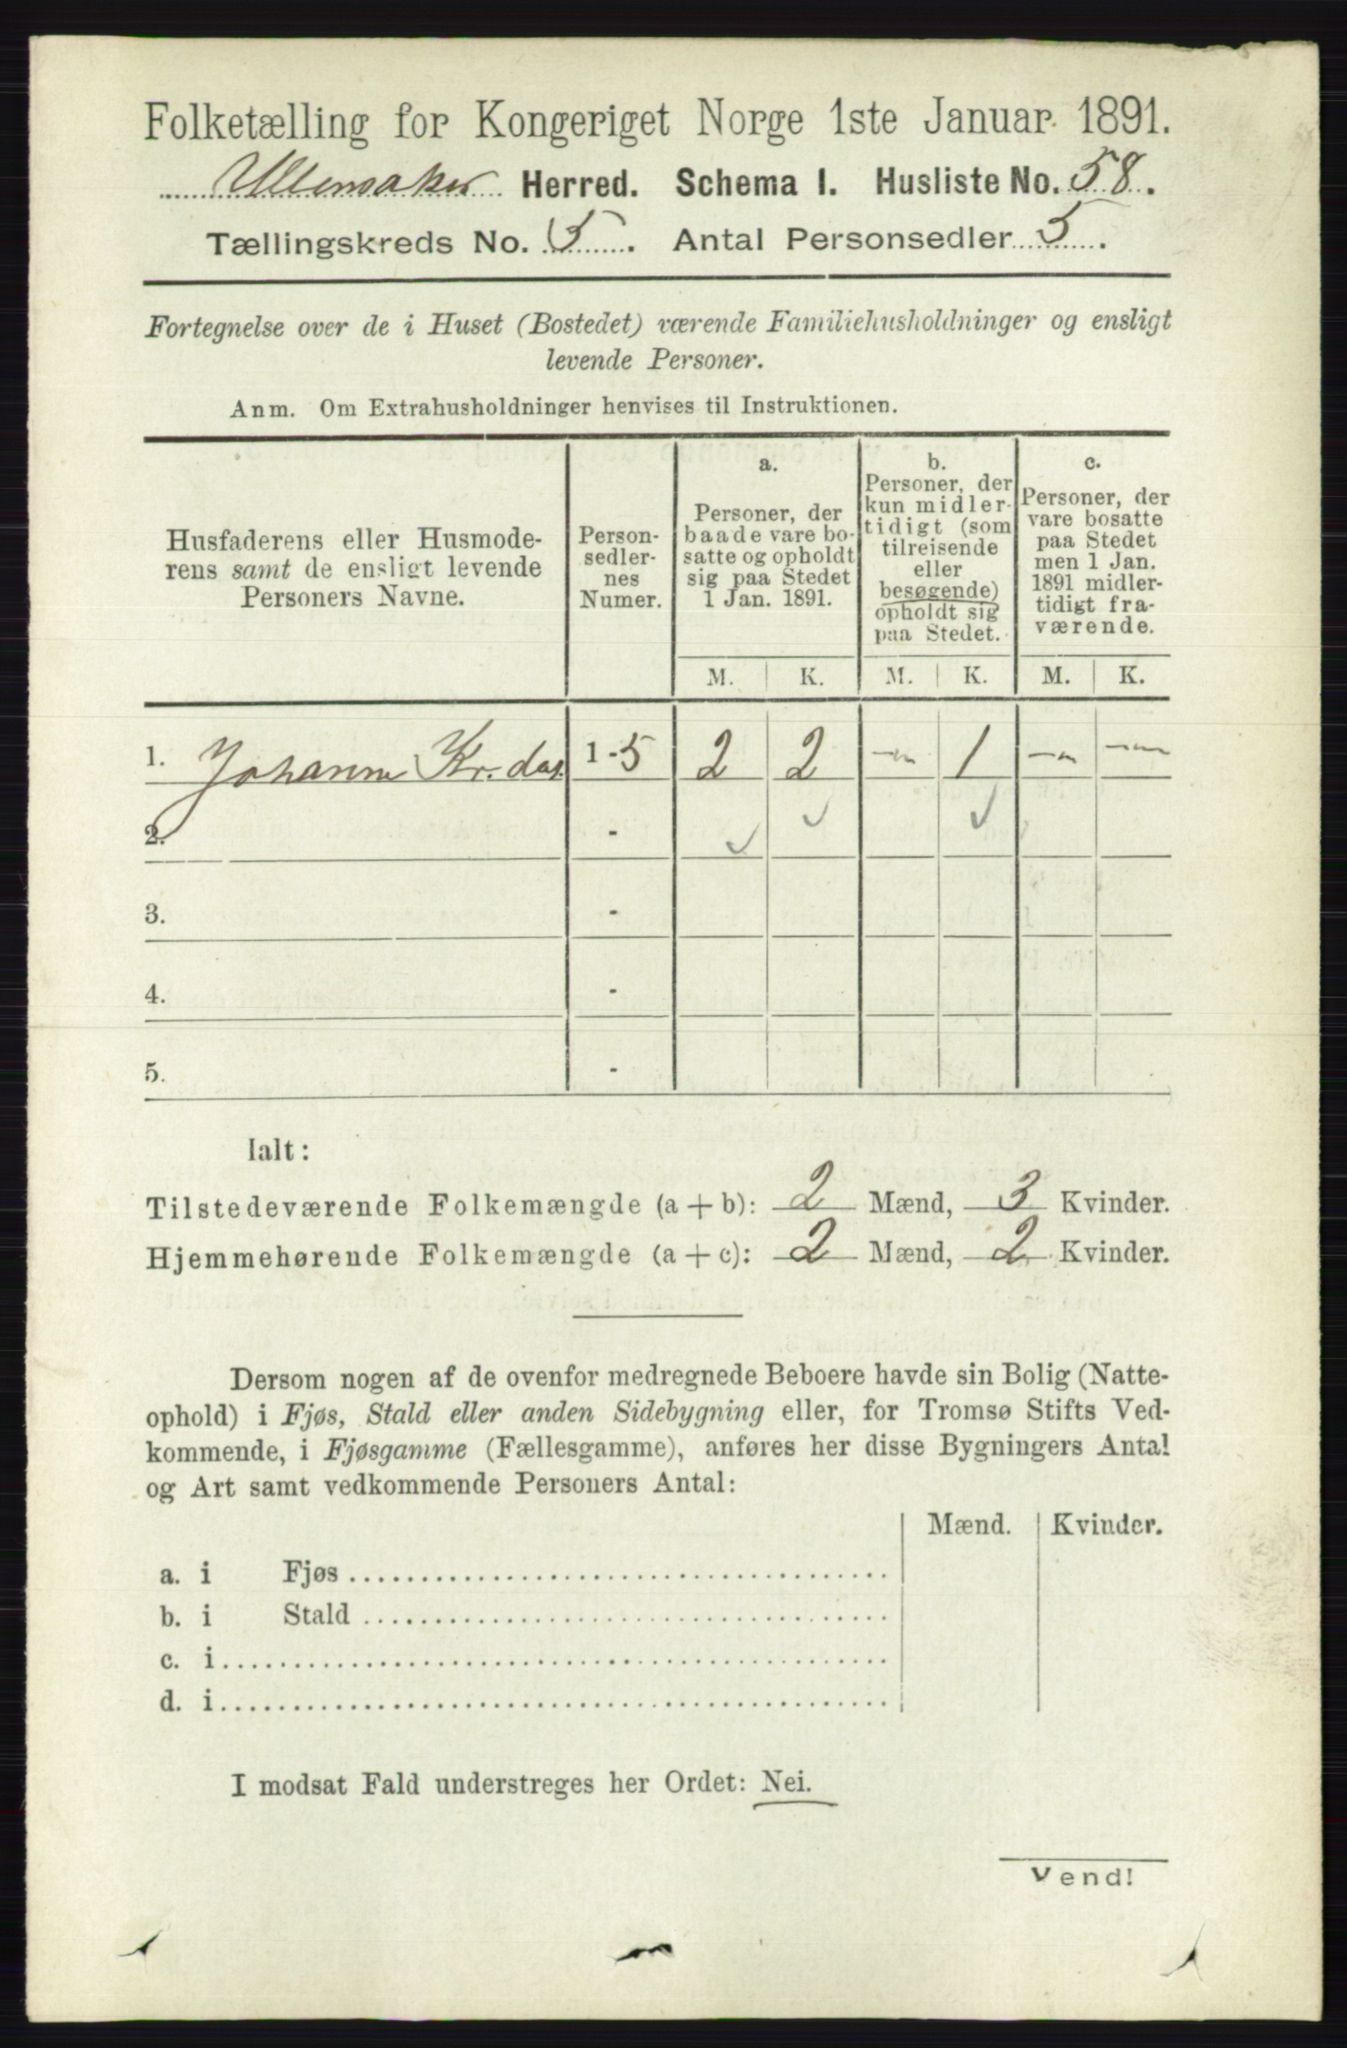 Folketælling for Kongeriget Norge 1ste Januar 1891.
Ullensaker Herred. Schema I. Husliste No. 58.
Tællingskreds No. 5. Antal Personsedler 5.
Fortegnelse over de i Huset (Bostedet) værende Familiehusholdninger og ensligt
levende Personer.
Anm. Om Extrahusholdninger henvises til Instruktionen.
Husfaderens eller Husmode-
rens samt de ensligt levende
Personers Navne.
Person-
sedler-
nes
Numer.
a.
Personer, der
baade vare bo-
satte og opholdt
sig paa Stedet
1 Jan. 1891.
b.
Personer, der
kun midler-
tidigt (som
tilreisende
eller
besøgende)
opholdt sig
paa Stedet.
c.
Personer, der
vare bosatte
paa Stedet
men 1 Jan.
1891 midler-
tidigt fra-
værende.
M. K. M. K. M. K.
1. Johanne Kr. dat. 1-5 2 2 — 1 — —
2. -
3. -
4. -
5. -
Ialt:
Tilstedeværende Folkemængde (a + b): 2 Mænd, 3 Kvinder.
Hjemmehørende Folkemængde (a + c): 2 Mænd, 2 Kvinder.
Dersom nogen af de ovenfor medregnede Beboere havde sin Bolig (Natte-
ophold) i Fjøs, Stald eller anden Sidebygning eller, for Tromsø Stifts Ved-
kommende, i Fjøsgamme (Fællesgamme), anføres her disse Bygningers Antal
og Art samt vedkommende Personers Antal:
Mænd. Kvinder.
a. i Fjøs
b. i Stald
c. i
d. i
I modsat Fald understreges her Ordet: Nei.
Vend!